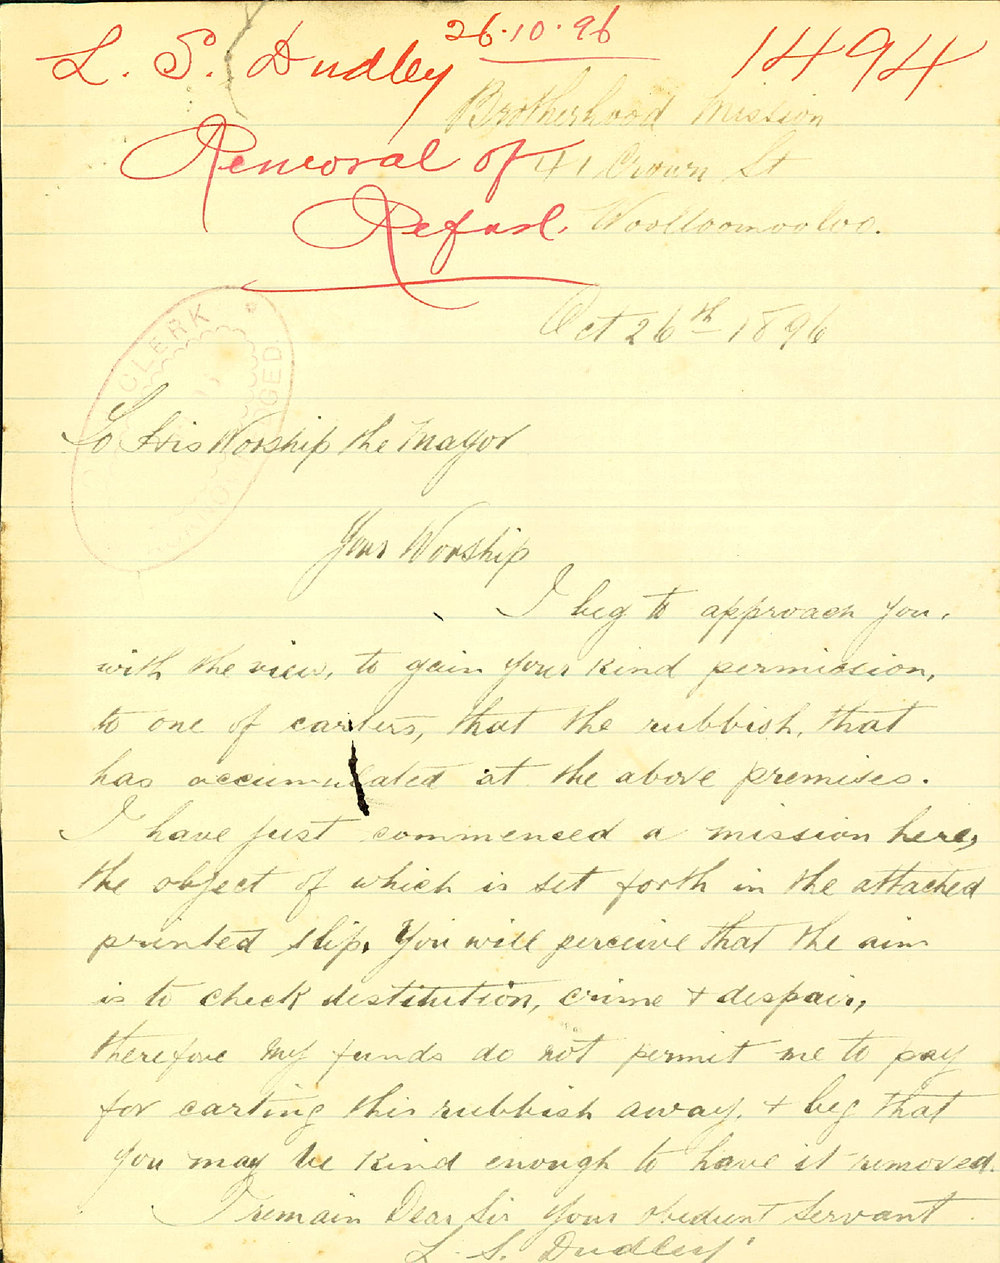 26.10.96
L. S. Dudley
1494
Brotherhood Mission
Removal of
41 Crown St
Refuse.
Woolloomooloo.
Oct 26th 1896
CLERK
To His Worship the Mayor
Your Worship
I beg to approach you,
with the view, to gain your kind permission,
to one of carters, that the rubbish, that
has accumulated at the above premises.
I have just commenced a mission here,
the object of which is set forth in the attached
printed slip. You will perceive that the aim
is to check destitution, crime + despair,
therefore my funds do not permit me to pay
for carting this rubbish away, + beg that
you may be kind enough to have it removed.
I remain Dear Sir your obedient servant
L. S. Dudley